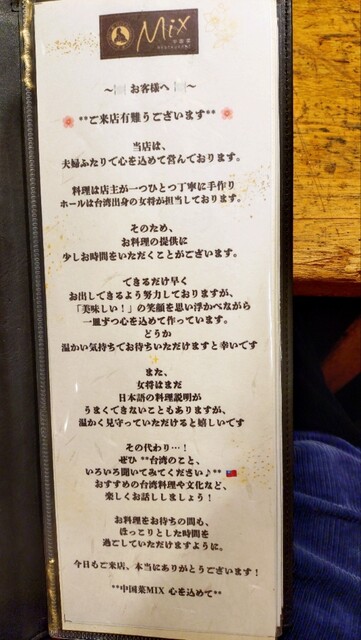 Mix
中国菜
restaurant
～🍽️ お客様へ 🍽️～
🌸 **ご来店有難うございます** 🌸
当店は、
夫婦ふたりで心を込めて営んでおります。
料理は店主が一つひとつ丁寧に手作り
ホールは台湾出身の女将が担当しております。
そのため、
お料理の提供に
少しお時間をいただくことがございます。
できるだけ早く
お出しできるよう努力しておりますが、
「美味しい！」の笑顔を思い浮かべながら
一皿ずつ心を込めて作っています。
どうか
温かい気持ちでお待ちいただけますと幸いです
✨
また、
女将はまだ
日本語の料理説明が
うまくできないこともありますが、
温かく見守っていただけると嬉しいです
その代わり…！
ぜひ **台湾のこと、
いろいろ聞いてみてください♪** 🇹🇼
おすすめの台湾料理や文化など、
楽しくお話ししましょう！
お料理をお待ちの間も、
ほっこりとした時間を
過ごしていただけますように。
今日もご来店、本当にありがとうございます！
**中国菜MIX 心を込めて**